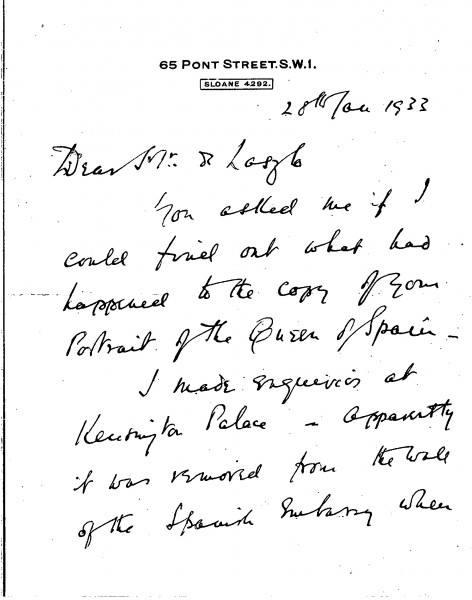 65 PONT STREET. S.W.1.
SLOANE 4292.
28th Jan 1933
Dear Mr. de Laszlo
You asked me if I
could find out what had
happened to the copy of your
Portrait of the Queen of Spain –
I made enquiries at
Kensington Palace – apparently
it was removed from the wall
of the Spanish Embassy when